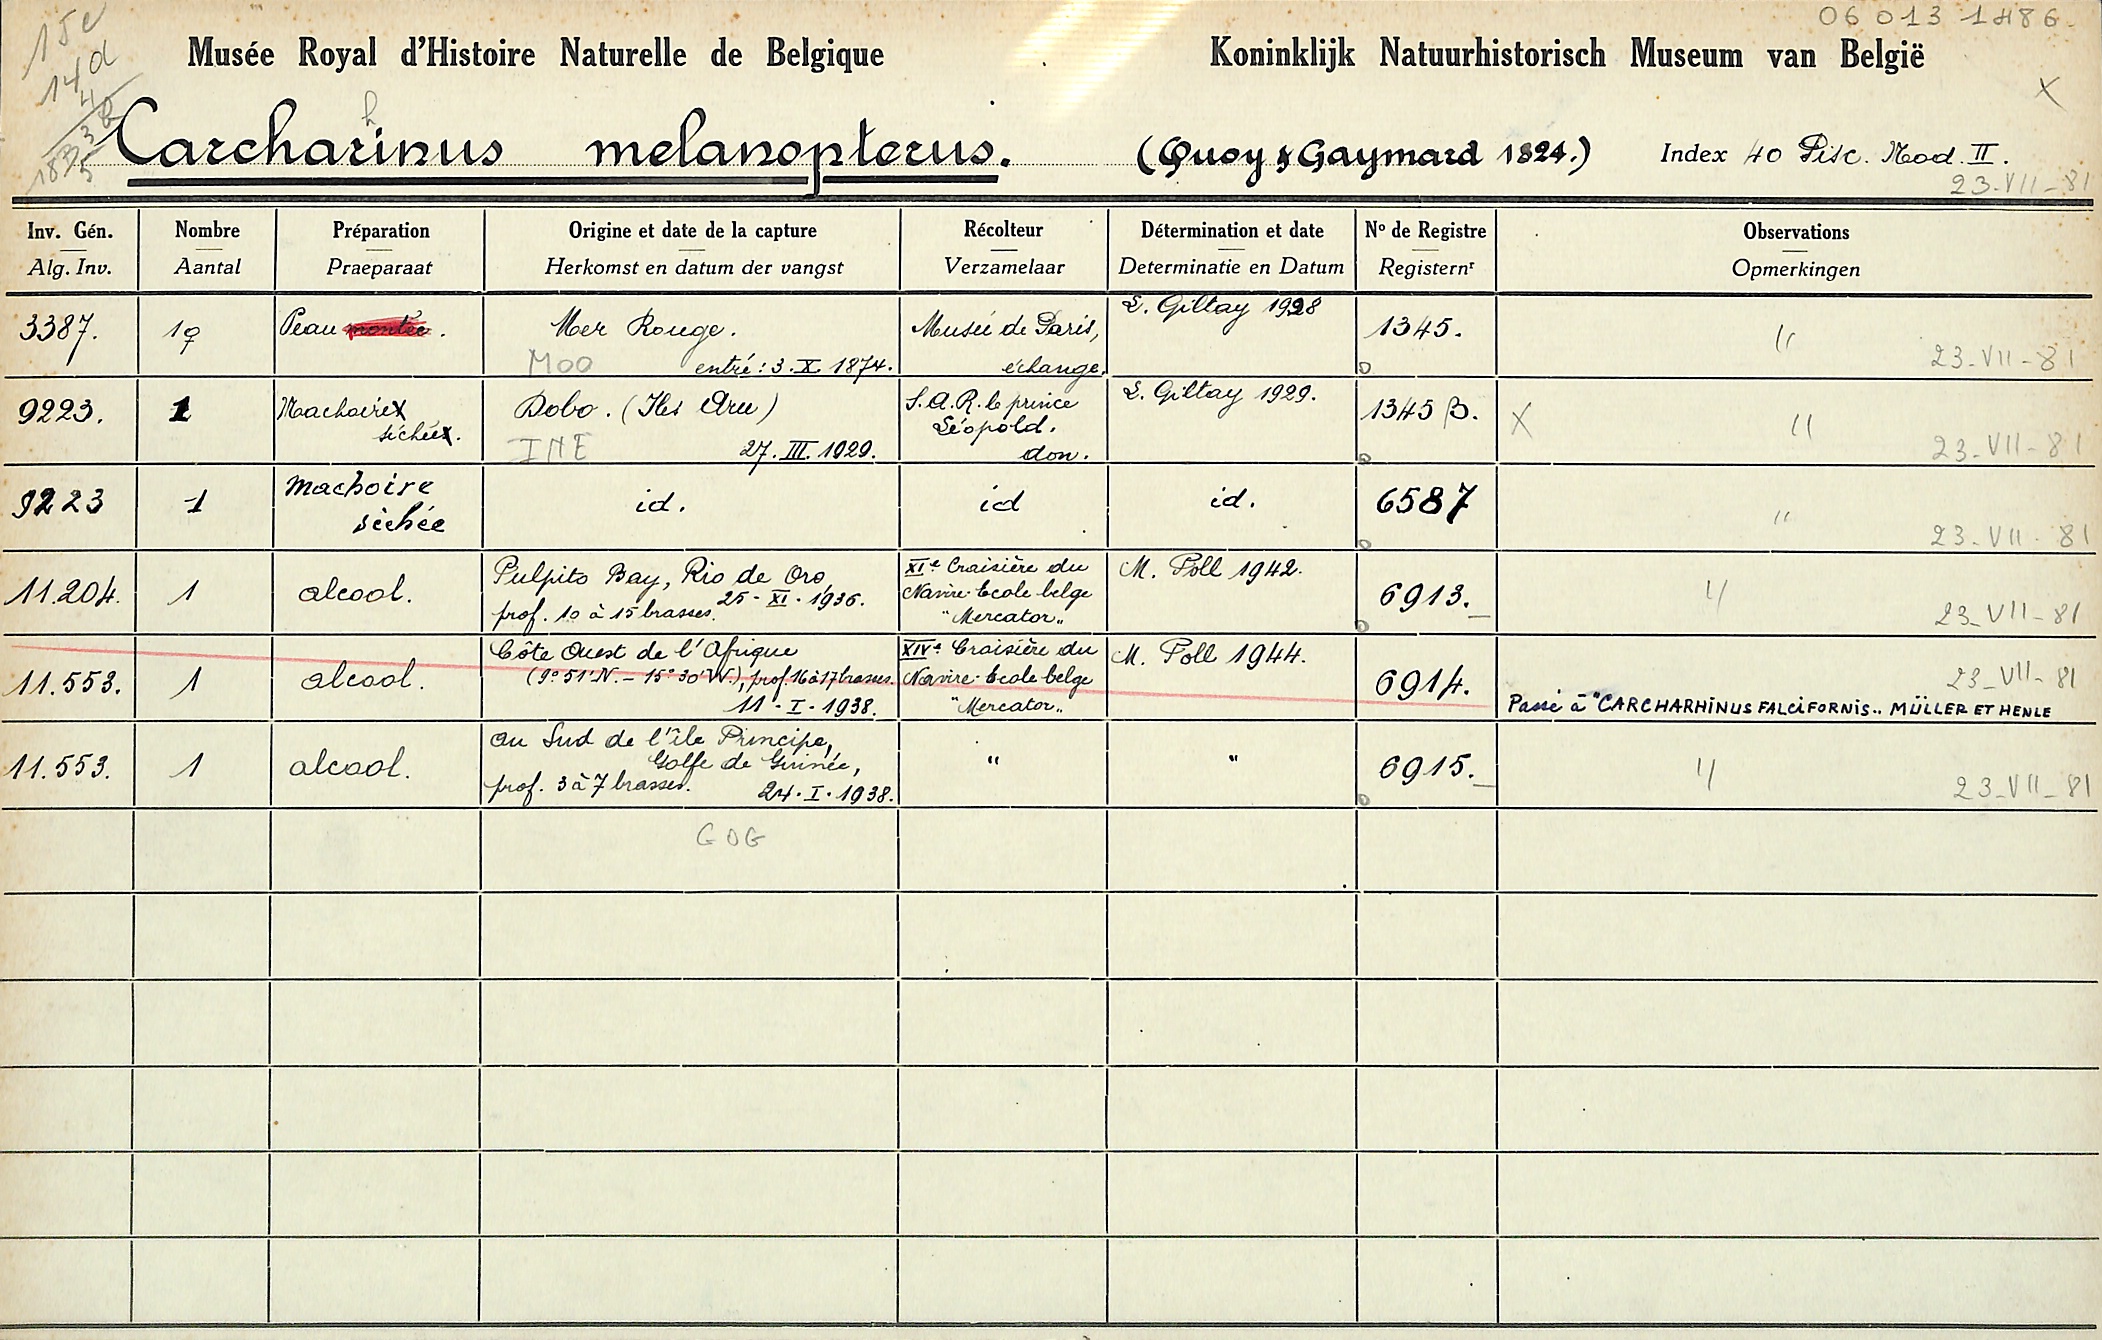 15e
14d
06 013 1486
Musée Royal d'Histoire Naturelle de Belgique
Koninklijk Natuurhistorisch Museum van België
X
h
Carcharinus melanopterus. (Quoy & Gaymard 1824.) Index 40 Pisc. Mod. II.
23-VII-81
Inv. Gén. Nombre Préparation Origine et date de la capture Récolteur Détermination et date N° de Registre Observations
Alg. Inv. Aantal Praeparaat Herkomst en datum der vangst Verzamelaar Determinatie en Datum Registernr Opmerkingen
3387. 1♀ Peau montée. Mer Rouge. Musée de Paris, L. Giltay 1928 1345. "
MOO entré: 3.X.1874. échange. 23-VII-81
9223. 1 Machoirex Dobo. (Iles Aru) S.A.R. le prince L. Giltay 1929. 1345 β. X "
séchéex. Léopold.
INE 27.III.1929. don. 23-VII-81
9223 1 Machoire id. id id. 6587 "
séchée 23-VII-81
11.204. 1 alcool. Pulpito Bay, Rio de Oro, XIe Croisière du M. Poll 1942. 6913. "
25-XI-1936. Navire-Ecole belge
prof. 10 à 15 brasses. "Mercator" 23-VII-81
11.553. 1 alcool. Côte Ouest de l'Afrique XIVe Croisière du M. Poll 1944. 6914. 23-VII-81
(9°51'N. - 15°30'W.), prof. 16 à 17 brasses. Navire-Ecole belge
11-I-1938. "Mercator" Passé à "CARCHARHINUS FALCIFORNIS" MÜLLER ET HENLE
11.553. 1 alcool. au Sud de l'île Principe, " " 6915. "
Golfe de Guinée,
prof. 3 à 7 brasses. 24.I.1938. 23-VII-81
GOG